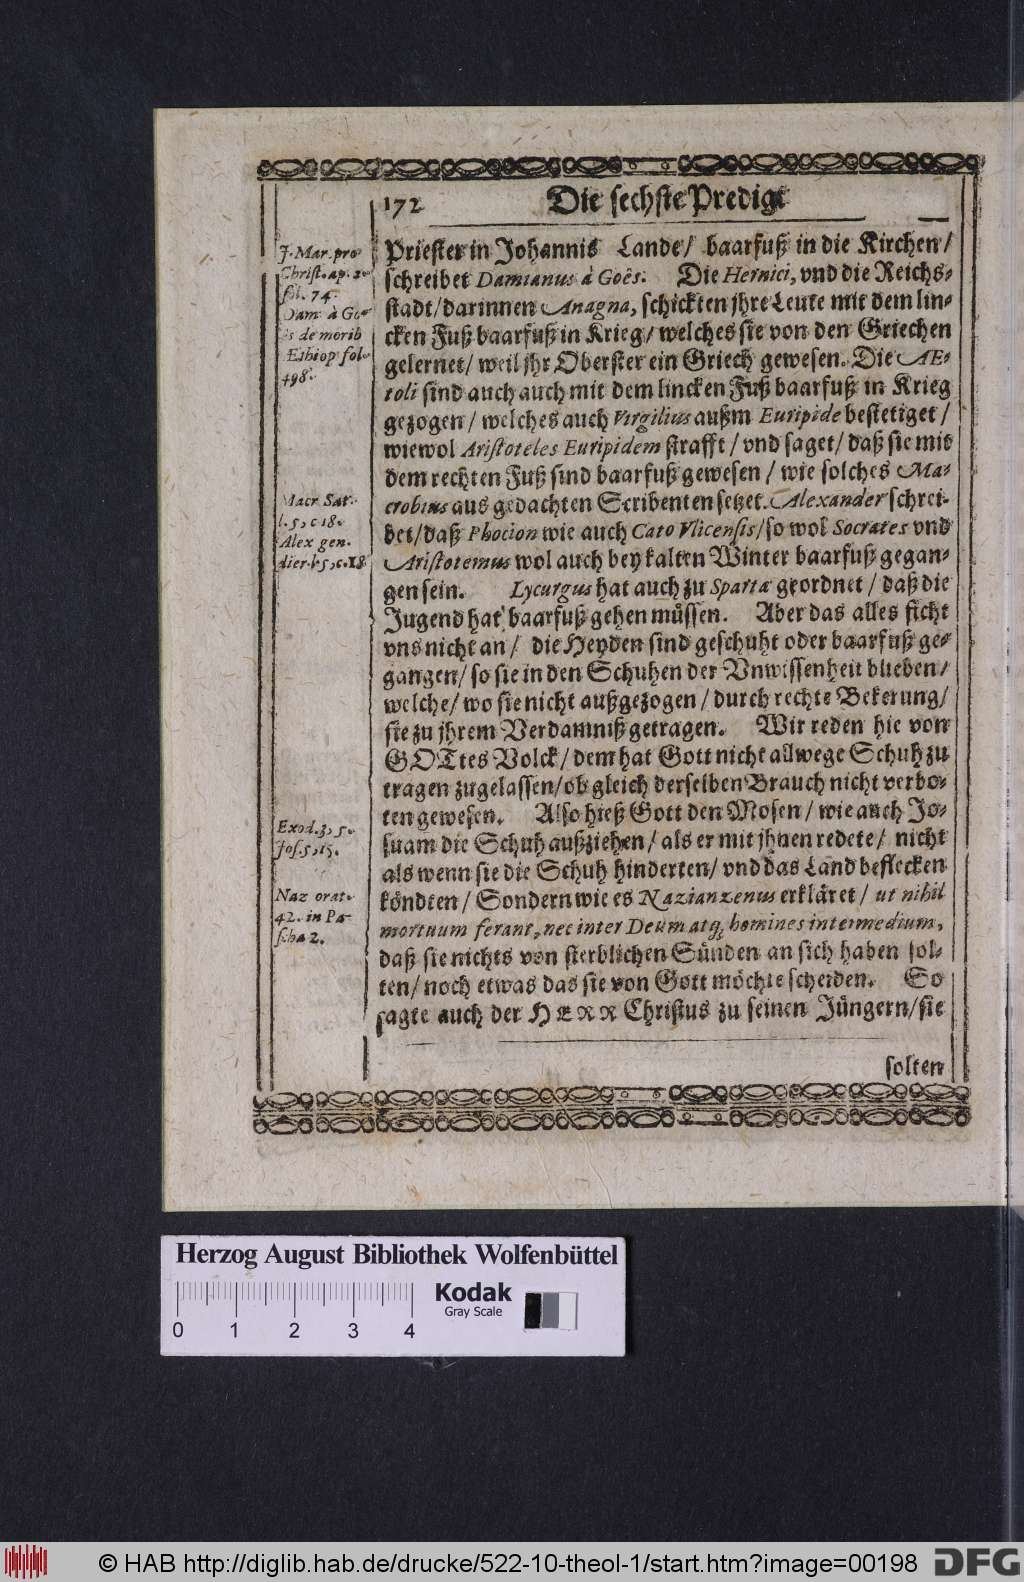 172 Die sechste Predigt
Priester in Johannis Lande/ baarfuß in die Kirchen/
schreibet Damianus à Goës. Die Hernici, vnd die Reichs-
stadt/ darinnen Anagna, schickten jhre Leute mit dem lin-
cken Fuß baarfuß in Krieg/ welches sie von den Griechen
gelernet/ weil jhr Oberster ein Griech gewesen. Die AE-
toli sind auch auch mit dem lincken Fuß baarfuß in Krieg
gezogen/ welches auch Virgilius außm Euripide bestetiget/
wiewol Aristoteles Euripidem strafft/ vnd saget/ daß sie mit
dem rechten Fuß sind baarfuß gewesen/ wie solches Ma-
crobius aus gedachten Scribenten setzet. Alexander schrei-
bet/ daß Phocion wie auch Cato Vlicensis/ so wol Socrates vnd
Aristotemus wol auch bey kalten Winter baarfuß gegan-
gen sein. Lycurgus hat auch zu Spartæ geordnet/ daß die
Jugend hat baarfuß gehen müssen. Aber das alles ficht
vns nicht an/ die Heyden sind geschuht oder baarfuß ge-
gangen/ so sie in den Schuhen der Vnwissenheit blieben/
welche/ wo sie nicht außgezogen/ durch rechte Bekerung/
sie zu jhrem Verdamniß getragen. Wir reden hie von
GOTtes Volck/ dem hat Gott nicht allwege Schuh zu
tragen zugelassen/ ob gleich derselben Brauch nicht verbo-
ten gewesen. Also hieß Gott den Mosen/ wie auch Jo-
suam die Schuh außziehen/ als er mit jhnen redete/ nicht
als wenn sie die Schuh hinderten/ vnd das Land beflecken
köndten/ Sondern wie es Nazianzenus erkläret/ ut nihil
mortuum ferant, nec inter Deum atq; homines intermedium,
daß sie nichts von sterblichen Sünden an sich haben sol-
ten/ noch etwas das sie von Gott möchte scheiden. So
sagte auch der HERR Christus zu seinen Jüngern/ sie
solten
J. Mar. pro
Christ. ap. 2.
fol. 74.
Dam. à Go-
ës de morib
Æthiop fol.
498.
Macr Sat.
l. 5, c 18.
Alex gen.
dier. l. 5, c. 18
Exod. 3, 5.
Jos. 5, 15.
Naz orat.
42. in Pa-
scha 2.
Herzog August Bibliothek Wolfenbüttel
Kodak
Gray Scale
0 1 2 3 4
© HAB http://diglib.hab.de/drucke/522-10-theol-1/start.htm?image=00198
DFG